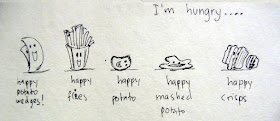 I'm hungry....
happy
potato
wedges!
happy
fries
happy
potato
happy
mashed
potato
happy
crisps